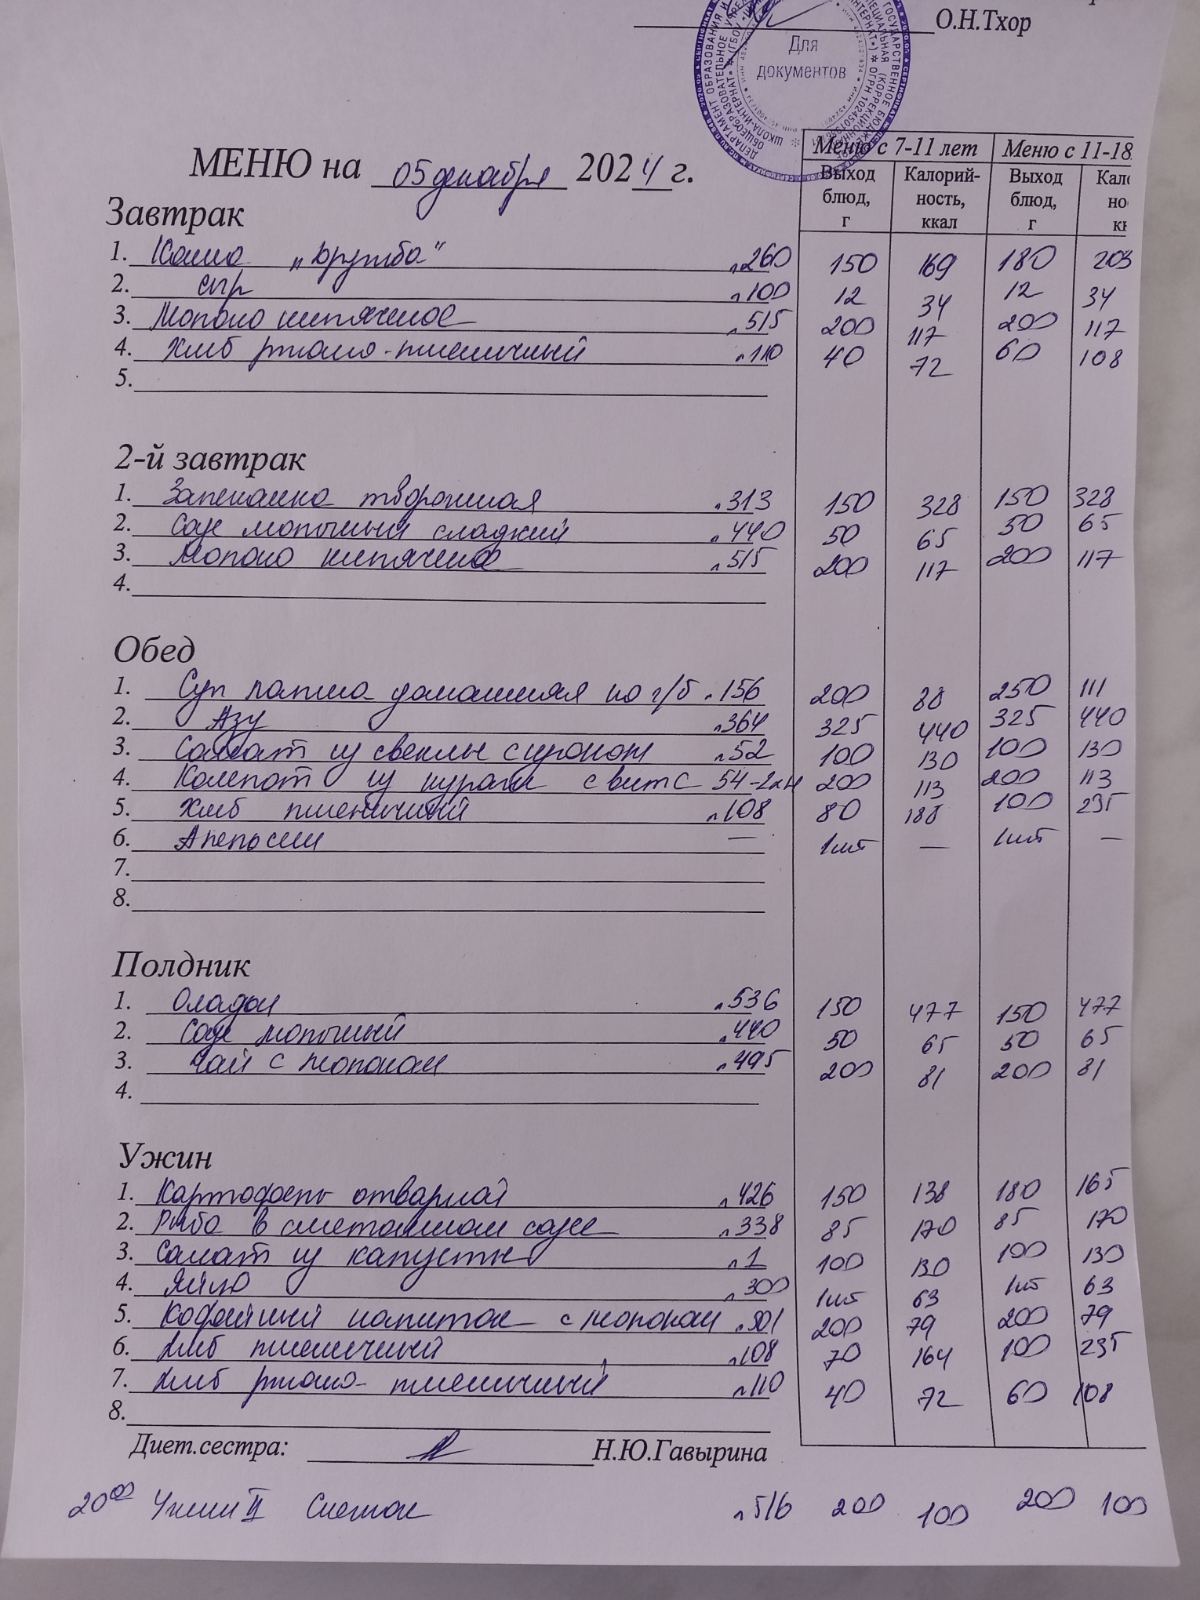 О.Н.Тхор
Для
документов
МЕНЮ на 05 декабря 2024 г.
Меню с 7-11 лет Меню с 11-18
Выход блюд, г Калорий-ность, ккал Выход блюд, г
Завтрак
1. Каша "Дружба" л.260 150 169 180 203
2. сыр л.100 12 34 12 34
3. Молоко кипяченое л.515 200 117 200 117
4. Хлеб ржано-пшеничный л.110 40 72 60 108
5.
2-й завтрак
1. Запеканка творожная л.313 150 328 150 328
2. Соус молочный сладкий л.440 50 65 50 65
3. Молоко кипяченое л.515 200 117 200 117
4.
Обед
1. Суп лапша домашняя по г/б л.156 200 88 250 111
2. Азу л.364 325 440 325 440
3. Салат из свеклы с чесноком л.52 100 130 100 130
4. Компот из кураги с вит С 54-2хн 200 113 200 113
5. Хлеб пшеничный л.108 80 188 100 235
6. Апельсин — 1шт — 1шт —
7.
8.
Полдник
1. Оладьи л.536 150 477 150 477
2. Соус молочный л.440 50 65 50 65
3. Чай с молоком л.495 200 81 200 81
4.
Ужин
1. Картофель отварной л.426 150 138 180 165
2. Рыба в сметанном соусе л.338 85 170 85 170
3. Салат из капусты л.1 100 130 100 130
4. Яйцо л.300 1шт 63 1шт 63
5. Кофейный напиток с молоком л.501 200 79 200 79
6. Хлеб пшеничный л.108 70 164 100 235
7. Хлеб ржано-пшеничный л.110 40 72 60 108
8.
Диет.сестра: Н.Ю.Гавырина
20⁰⁰ Ужин II Снежок л.516 200 100 200 100